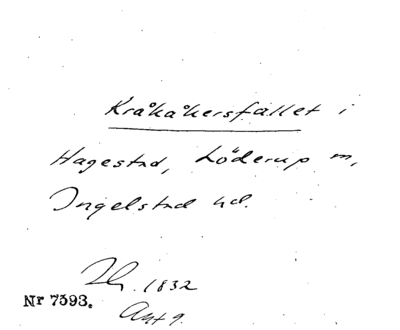 Kråkåkersfället i
Hagestad, Löderup m,
Ingelstad hd.
1832
Nr 7593.
Akt 9.